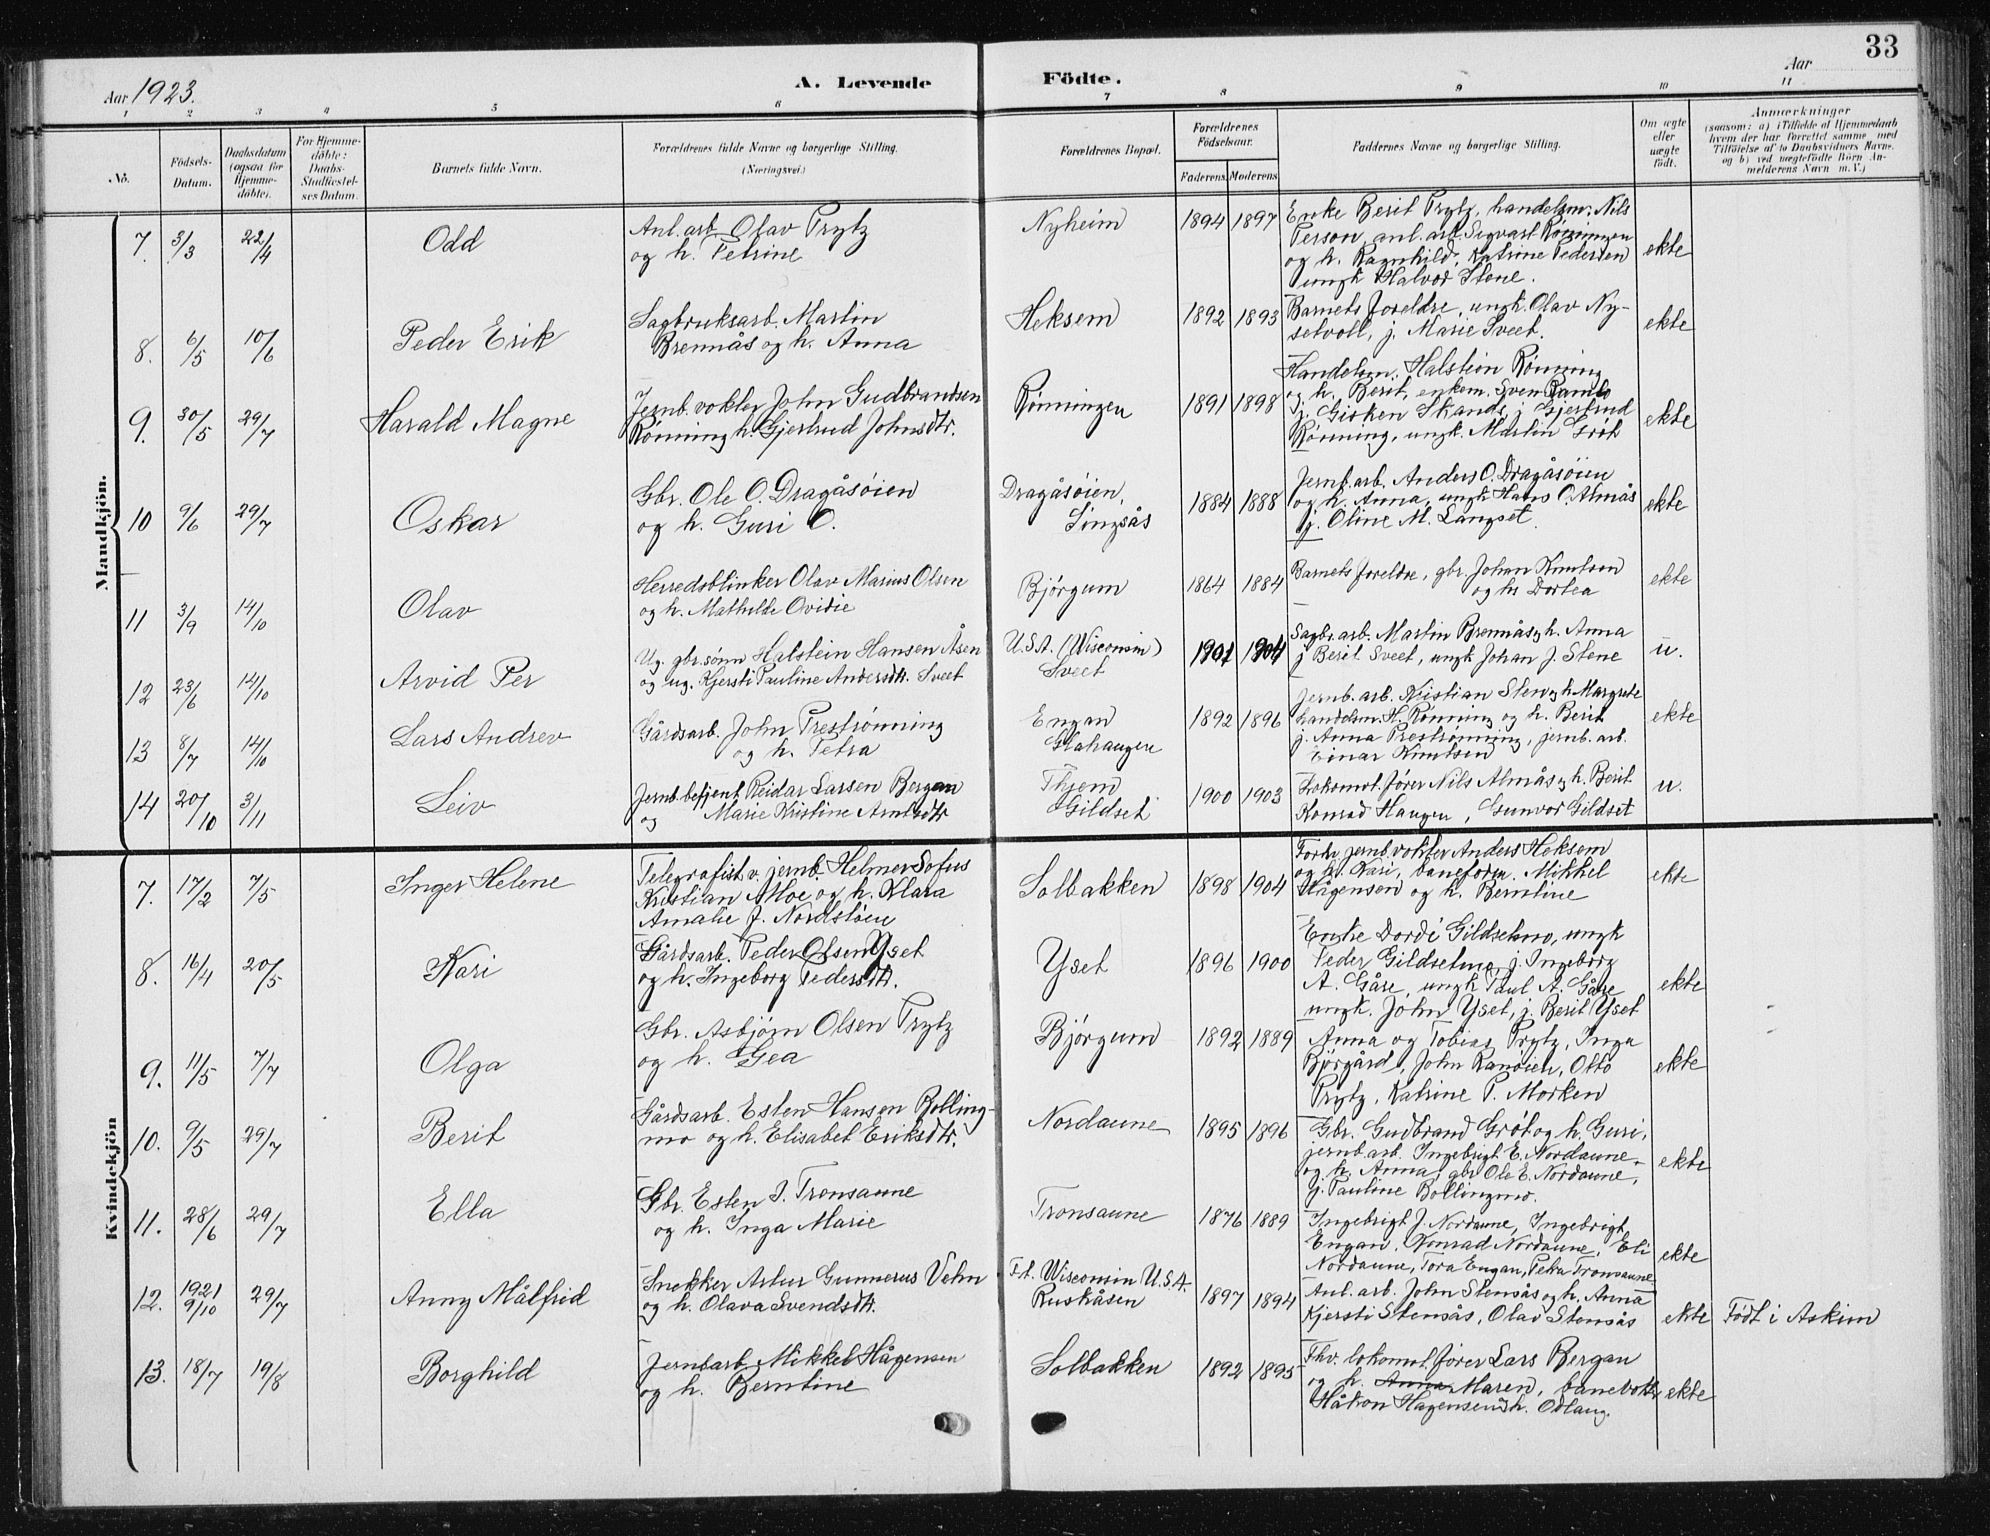 33
Aar 1923.
A. Levende
Födte.
Aar
1 2 3 4 5 6 7 8 9 10 11
No.
Födsels-Datum.
Daabsdatum (ogsaa for Hjemmedöbte).
For Hjemmedöbte: Daabs-Stadfæstelses Datum.
Barnets fulde Navn.
Forældrenes fulde Navne og borgerlige Stilling. (Næringsvei.)
Forældrenes Bopæl.
Forældrenes Födselsaar.
Faderens. Moderens.
Faddernes Navne og borgerlige Stilling.
Om ægte eller uægte födt.
Anmærkninger
(saasom: a) i Tilfælde af Hjemmedaab
hvem der har forrettet samme, med
Tilföielse af to Daabsvidners Navne.
og b) ved uægtefödte Börn An-
melderens Navn m. V.)
Mandkjön.
7. 3/3 22/4 Odd
Anl. arb. Olav Trytz
og h. Petrine
Nyheim 1894 1897
Enke Berit Trytz, handelsm. Nils
Person, anl. arb. Sigvart Rønningen
og h. Ragnhild, Katrine Pedersen
ungk Halvor Stene.
ekte
8. 6/5 10/6 Peder Erik
Sagbruksarb. Martin
Brennås og h. Anna
Heksem 1892 1893
Barnets foreldre, ungk. Olav Ny-
setvoll, j. Marie Sveet.
ekte
9. 30/5 29/7 Harald Magne
Jernb. vokter John Gudbrandsen
Rønning h. Gjertrud Johnsdtr.
Rønningen 1891 1898
Handelsm. Halstein Rønning
og h. Berit, enkem. Sven Ramlo
j. Gisken Skands, j Gjertrud
Rønning, ungk. Martin Grøt
ekte
10 9/6 29/7 Oskar
Gbr. Ole O. Dragåsøien
og h. Guri O.
Dragåsøien,
Singsås
1884 1888
Jernb. arb. Anders O. Dragåsøien
og h. Anna, ungk Hans O. Almås
j. Oline M. Langset.
ekte
11 3/9 14/10 Olav
Herredsblinker Olav Marius Olsen
og h. Mathilde Ovidie
Bjørgum 1864 1884
Barnets foreldre, gbr. Johan Knutson
og h. Dortea
ekte
12 23/6 14/10 Arvid Per
Ug. gbr. sønn Halstein Hansen Åsen
og ug. Kjersti Pauline Andersdtr. Sveet
U.S.A. (Wisconsin)
Sveet
1901 1904
Sagbr. arb. Martin Brennås og h. Anna
j Berit Sveet, ungk Johan J. Stene
u.
13 8/7 14/10 Lars Andrev
Gårdsarb. John Prestrønning
og h. Petra
Engan
Glahaugen
1892 1896
Jernb. arb. Kristian Sten og h Margrete
handelsm. H. Rønning og h. Berit
j. Anna Prestrønning, jernb. arb.
Einar Knutsen
ekte
14 20/10 3/11 Leiv
Jernb. betjent Reidar Larsen Bergan
og Marie Kristine Arntsdtr
Thjem
Gildset
1900 1903
Lokomot. fører Nils Almås og h. Berit
Konrad Haugen, Gunvor Gildset
u.
Kvindekjön
7. 17/2 7/5 Inger Helene
Telegrafist v. jernb. Helmer Sofus
Kristian Moe og h. Klara
Amalie J. Nordstøen
Solbakken 1898 1904
Forhv. jernb. vokter Anders Heksem
og h. Kari, baneform. Mikkel
Hågensen og h. Berntine
ekte
8. 16/4 20/5 Kari
Gårdsarb. Peder Olsen Yset
og h. Ingeborg Pedersdtr.
Yset 1896 1900
Enke Dordi Gildsetmo, ungk
Peder Gildsetmo, j. Ingeborg
A. Gåre, ungk Paul A. Gåre
ungk. John Yset, j. Berit Yset
ekte
9. 11/5 7/7 Olga
Gbr. Asbjørn Olsen Trytz
og h. Gea
Bjørgum 1892 1889
Anna og Tobias Trytz, Inga
Bjørgård, John Ranøien, Otto
Trytz, Katrine P. Morken
ekte
10. 9/5 29/7 Berit
Gårdsarb. Esten Hansen Bolling-
mo og h. Elisabet Eriksdtr.
Nordaune 1895 1896
Gbr. Gudbrand Grøt og h. Guri,
jernb. arb. Ingebrigt E. Nordaune
og h. Anna, gbr Ole E. Nordaune,
j. Pauline Bollingmo.
ekte
11. 28/6 29/7 Ella
Gbr. Esten J. Tronsaune
og h. Inga Marie
Tronsaune 1876 1889
Ingebrigt J. Nordaune, Ingebrigt
Engan, Konrad Nordaune, Eli
Nordaune, Tora Engan, Petra Tronsaune
ekte
12. 1921 9/10 29/7 Anny Målfrid
Snekker Artur Gunnerus Vehn
og h. Olava Svendsdtr.
F.t. Wisconsin U.S.A.
Ruskåsen
1897 1894
Anl. arb. John Stensås og h. Anna
Kjersti Stensås, Olav Stensås
ekte
Født i Askim
13. 18/7 19/8 Borghild
Jernbarb. Mikkel Hågensen
og h. Berntine
Solbakken 1892 1895
Fhv. lokomot. fører Lars Bergan
og h. Anna Maren, banevokt.
Håkon Hagensen og h. Odlaug.
ekte